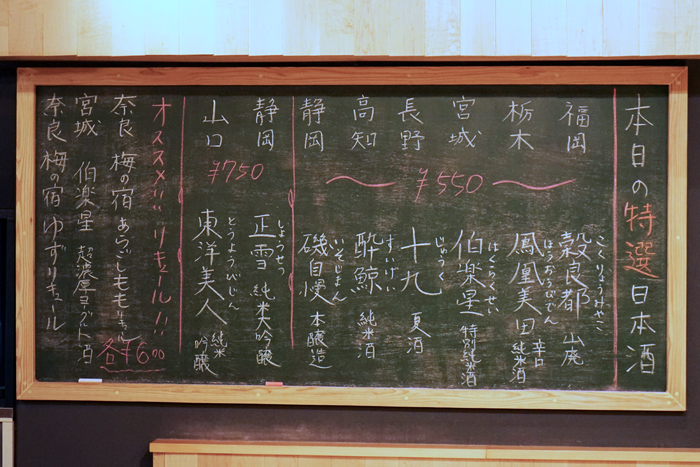 本日の特選日本酒
福岡 穀良都 山廃
こくりょうみやこ
栃木 鳳凰美田 辛口 純米酒
ほうおうびでん
宮城 伯楽星 特別純米酒
はくらくせい
長野 十九 夏酒
じゅうく
高知 酔鯨 純米酒
すいげい
静岡 磯自慢 本醸造
いそじまん
¥550
静岡 正雪 純米大吟醸
しょうせつ
山口 東洋美人 純米吟醸
とうようびじん
¥750
オススメ!!リキュール!!
奈良 梅の宿 あらごしもも
宮城 伯楽星 超濃厚ヨーグルト酒
奈良 梅の宿 ゆずリキュール
各¥600